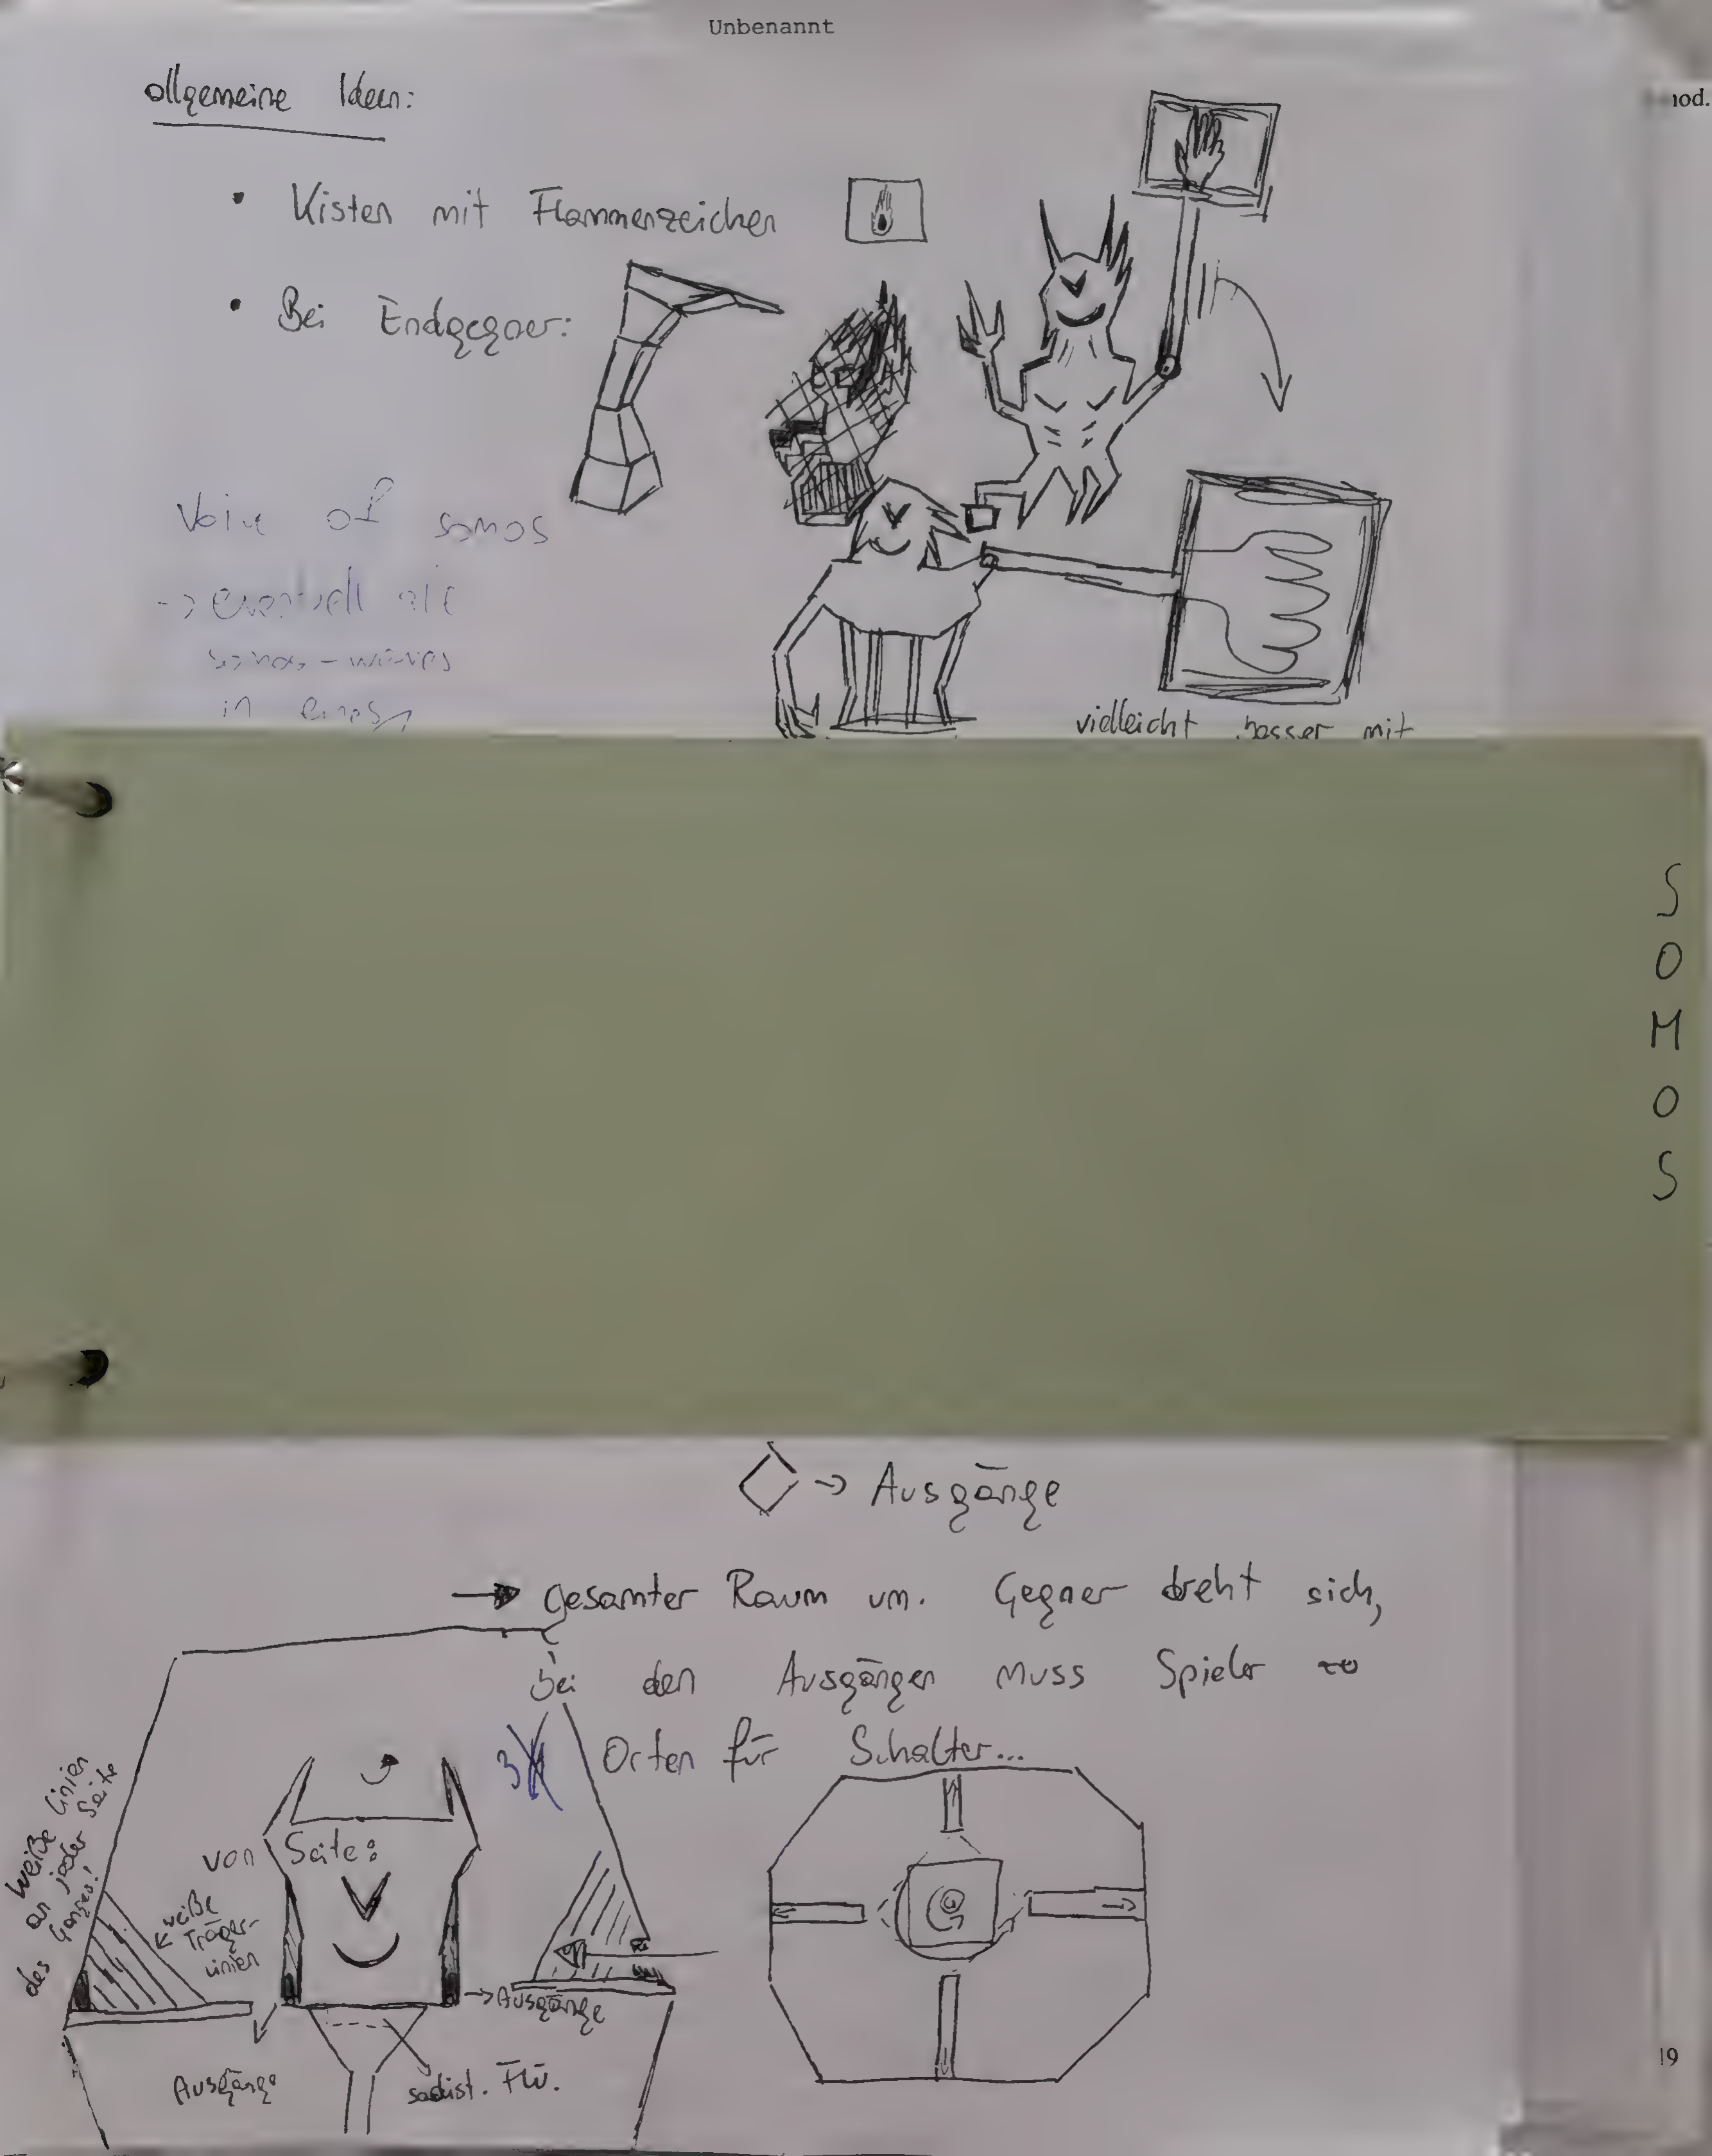 Unbenannt
allgemeine Ideen:
nod.
• Kisten mit Flammenzeichen
• Bei Endgegner:
Voice of somos
-> eventuell als
somos-waves
in
vielleicht besser mit
S
O
M
O
S
-> Ausgänge
-> gesamter Raum um. Gegner dreht sich,
bei den Ausgängen muss Spieler zu
3 Orten für Schalter...
weiße Linien
an jeder Seite
des Ganges!
von Seite:
weiße
Träger-
linien
-> Ausgänge
Ausgänge
sadist. Flü.
19